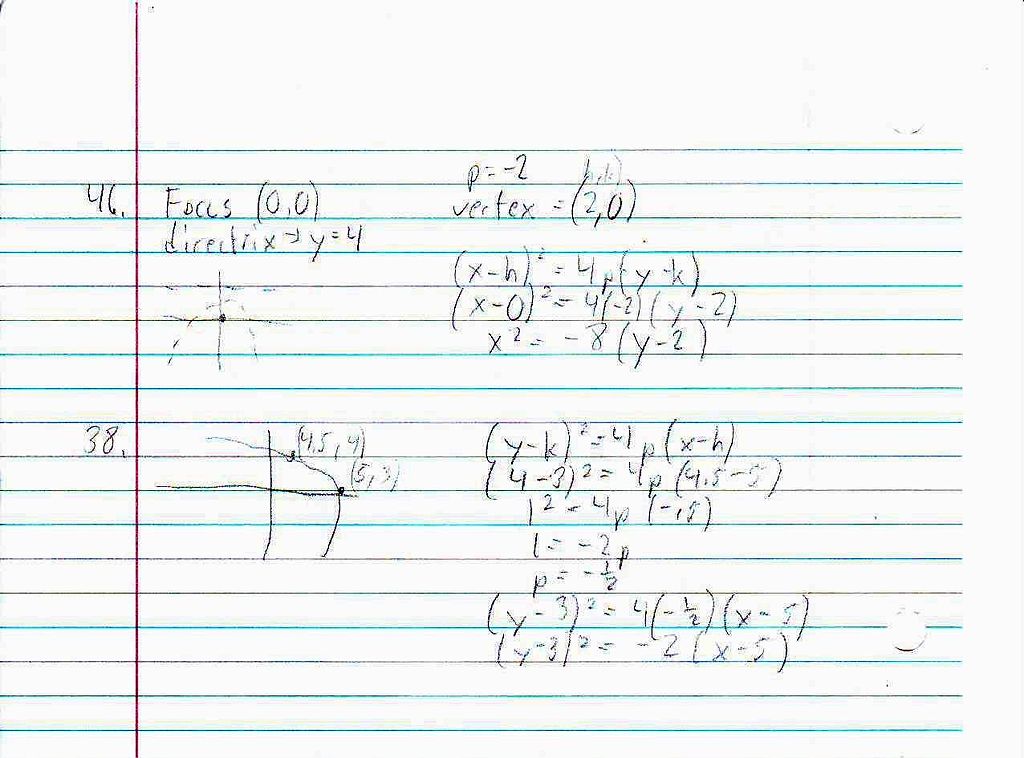 p = -2 h,k)
46. Focus (0,0) vertex = (2,0)
directrix → y = 4
(x-h)² = 4p(y-k)
(x-0)² = 4(-2)(y-2)
x² = -8(y-2)
38. (4.5, 4) (y-k)² = 4p(x-h)
(5,3) (4-3)² = 4p(4.5-5)
1² = 4p(-.5)
1 = -2p
p = -½
(y-3)² = 4(-½)(x-5)
(y-3)² = -2(x-5)